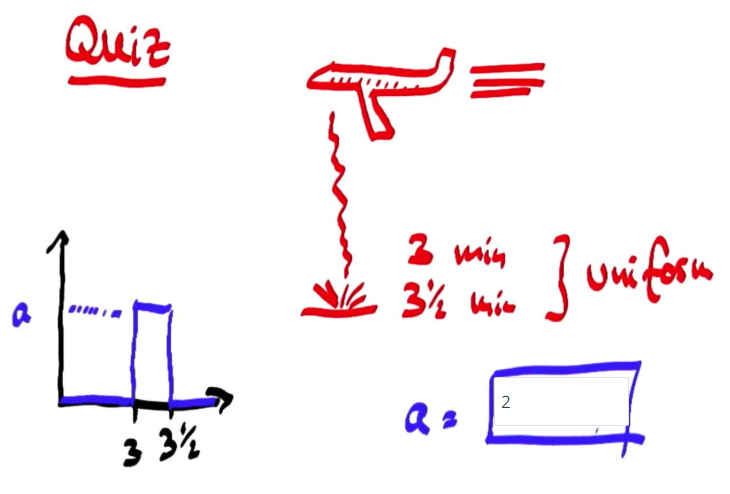 Quiz
3 min
3½ min
uniform
a
3 3½
a = 2